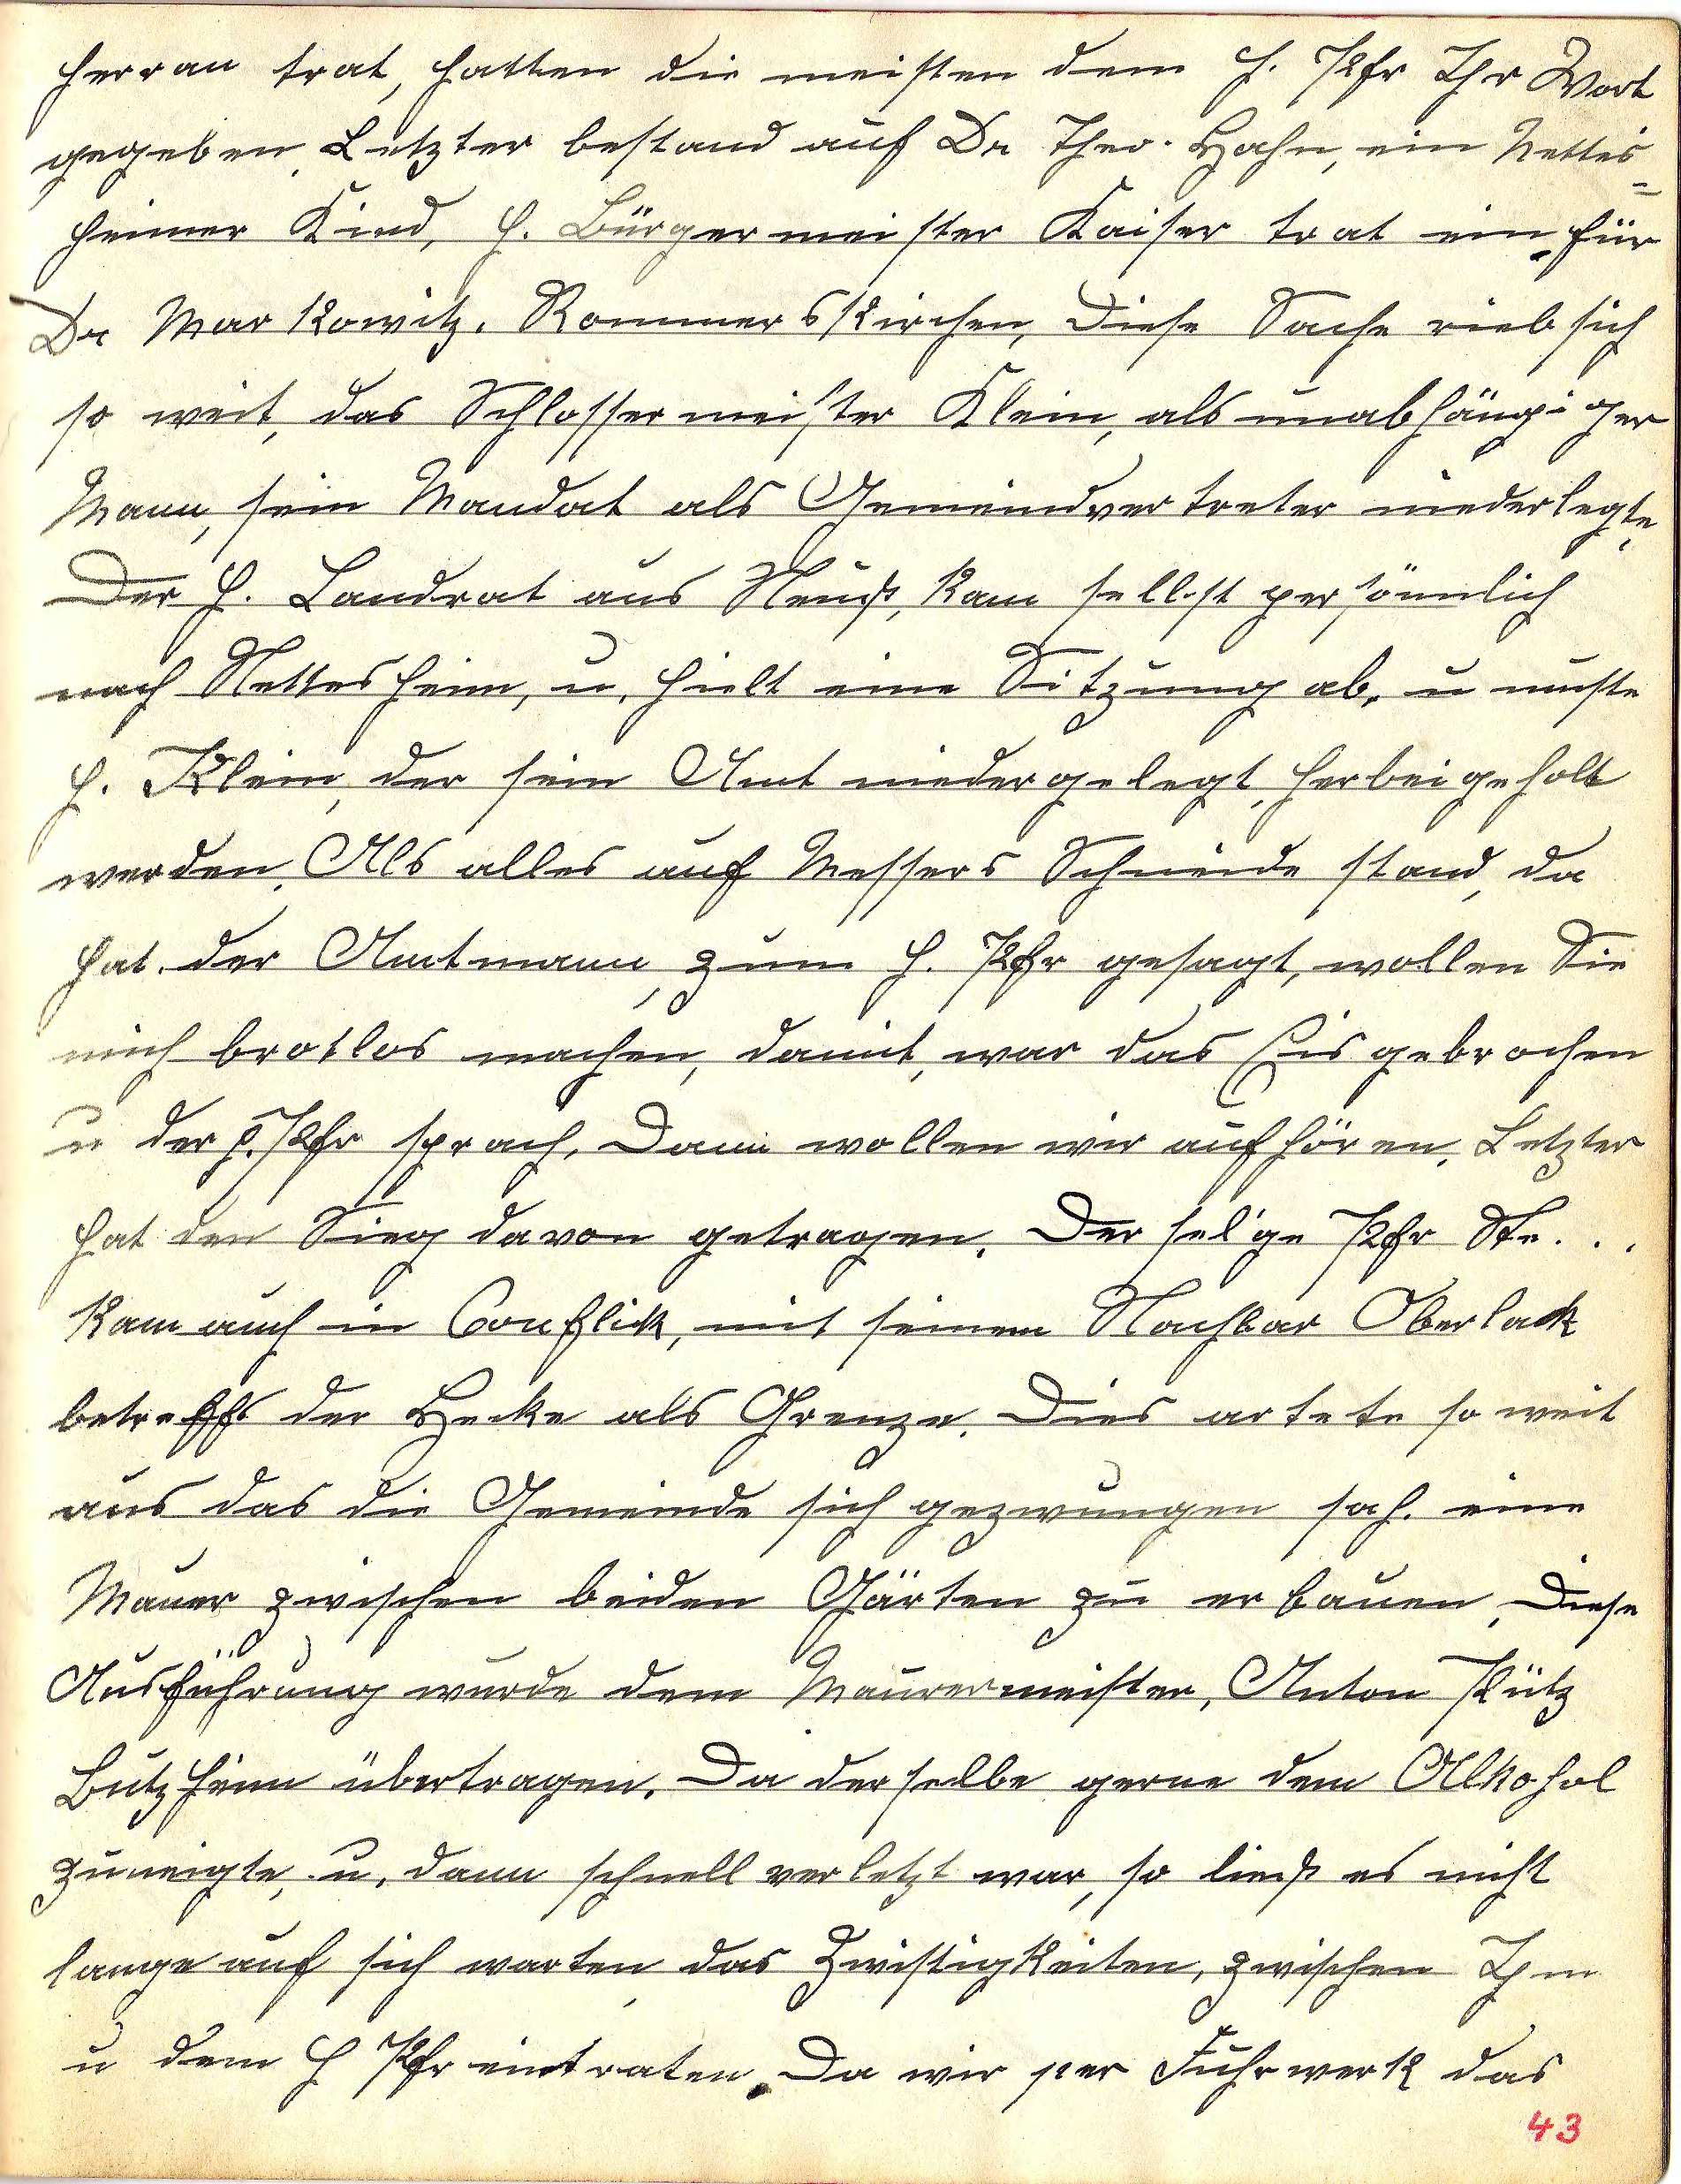 herran trat, hatten die meisten dem H. Pfr Ihr Wort
gegeben. Letzter bestand auf Dr Theo. Hahn, ein Nettes=
heimer Kind, H. Bürgermeister Kaiser trat ein, für
Dr Markowitz. Rommerskirchen, Diese Sache rieb sich
so weit, das Schlossermeister Klein, als unabhängiger
Mann, sein Mandat als Gemeindvertreter niederlegte.
Der H. Landrat aus Neuß, kam sellst persönnlich
nach Nettesheim, u. hielt eine Sitzung ab, u muste
H. Klein, der sein Amt niedergelegt, herbeigeholt
werden. Als alles auf Messers Schneide stand, da
hat der Amtmann, zum H. Pfr gesagt, wollen Sie
mich brotlos machen, damit, war das Eis gebrochen
u der H. Pfr sprach, Dann wollen wir aufhören. Letzter
hat den Sieg davon getragen. Der sel'ge Pfr Ste...
kam auch in Conflick, mit seinem Nachbar Oberlack
betreffs der Hecke als Grenze. Dies artete so weit
aus das die Gemeinde sich gezwungen sah. eine
Mauer zwischen beiden Gärten zu erbauen. Diese
Ausführung wurde dem Maurermeister, Anton Pütz
Butzheim übertragen. Da derselbe gerne dem Alkohol
zuneigte, u. dann schnell verletzt war, so ließ es nicht
lange auf sich warten, das Zwistigkeiten, zwischen Ihm
u dem H Pfr eintraten. Da wir per Fuhrwerk das
43